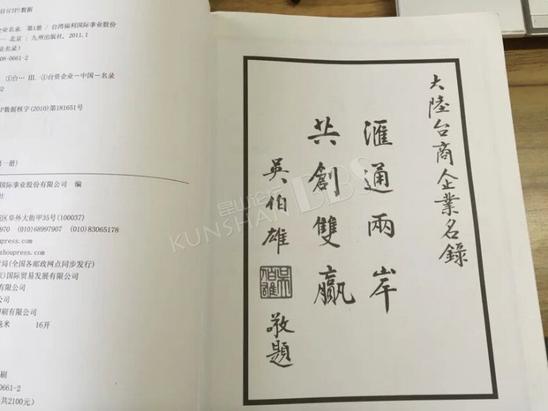 业名录. 第1册 / 台湾福利国际事业股份
北京 : 九州出版社, 2011.1
业名录)
08-0661-2
①台… Ⅲ. ①台资企业-中国-名录
数据核字(2010)第181651号
一册)
国际事业股份有限公司 编
区阜外大街甲35号(100037)
970 (010)68997907 (010)83065178
houpress.com
zhoupress.com
局(全国各邮政网点同步发行)
国际贸易发展有限公司
有限公司
印刷有限公司
毫米 16开
刷
0661-2
共2100元)
大陸台商企業名錄
滙通兩岸
共創雙贏
吳伯雄
敬題
昆山论坛
KUNSHAN BBS